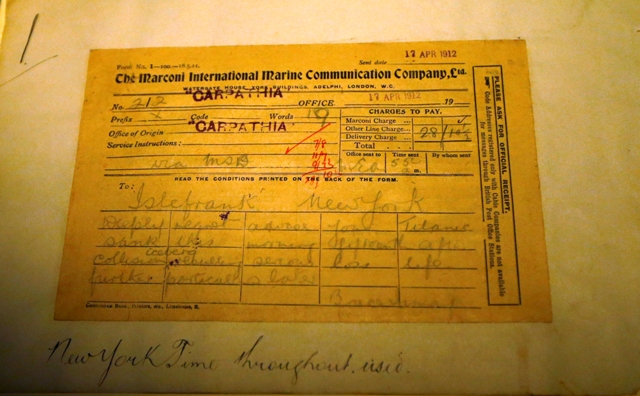 Form No. 1—100.
Sent date 17 APR 1912
The Marconi International Marine Communication Company, Ltd.
WATERGATE HOUSE, YORK BUILDINGS, ADELPHI, LONDON, W.C.
No. 212 "CARPATHIA" OFFICE 17 APR 1912 19
Prefix X Code Words
CHARGES TO PAY.
Office of Origin "CARPATHIA"
Marconi Charge ...
Other Line Charge ...
Delivery Charge ...
Total
Service Instructions:
via MSD
Office sent to Time sent By whom sent
READ THE CONDITIONS PRINTED ON THE BACK OF THE FORM.
To: Islefrank New York
Deeply regret advise you Titanic
sank this morning after
collision iceberg resulting serious loss life
further particulars later
PLEASE ASK FOR OFFICIAL RECEIPT.
Code Addresses registered only with Cable Companies are not available
for messages through British Post Office Stations.
New York Time throughout. used.